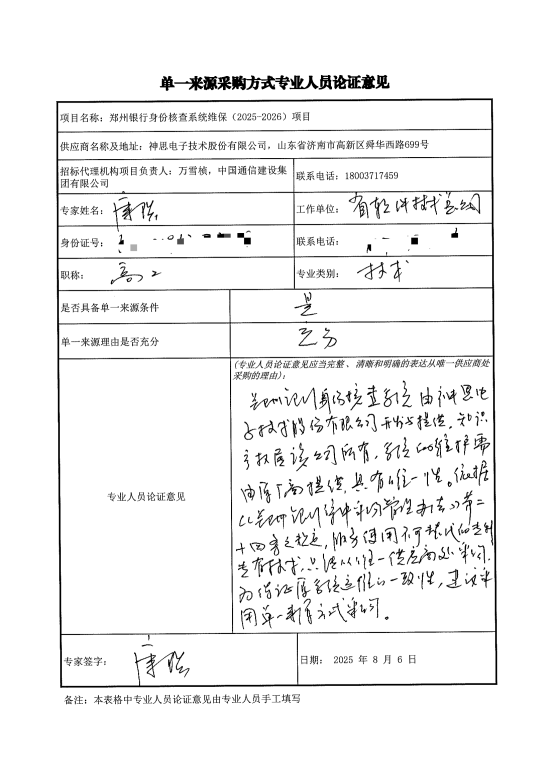 单一来源采购方式专业人员论证意见
项目名称：郑州银行身份核查系统维保（2025-2026）项目
供应商名称及地址：神思电子技术股份有限公司，山东省济南市高新区舜华西路699号
招标代理机构项目负责人：万雪桢，中国通信建设集团有限公司
联系电话：18003717459
专家姓名：
工作单位：省软件技术总公司
身份证号：
联系电话：
职称：高工
专业类别：技术
是否具备单一来源条件
是
单一来源理由是否充分
充分
专业人员论证意见
(专业人员论证意见应当完整、清晰和明确的表达从唯一供应商处
采购的理由)：
郑州银行身份核查系统由神思电
子技术股份有限公司开发与提供，知识
产权属该公司所有，系统的维护需
由原厂商提供，具有唯一性。依据
《郑州银行集中采购管理办法》第二
十四条之规定，服务使用不可替代的专利
专有技术，只能从唯一供应商处采购，
为保证原系统运维的一致性，建议采
用单一来源方式采购。
专家签字：
日期： 2025 年 8 月 6 日
备注：本表格中专业人员论证意见由专业人员手工填写